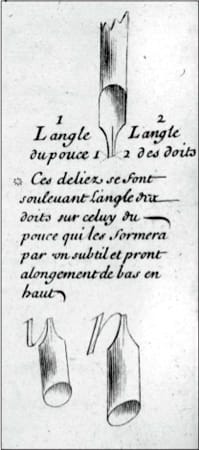 1 2
L'angle L'angle
du pouce 1 2 des doits
Ces deliez se font
souleuant L'angle des
doits sur celuy du
pouce qui les formera
par vn subtil et pront
alongement de bas en
haut